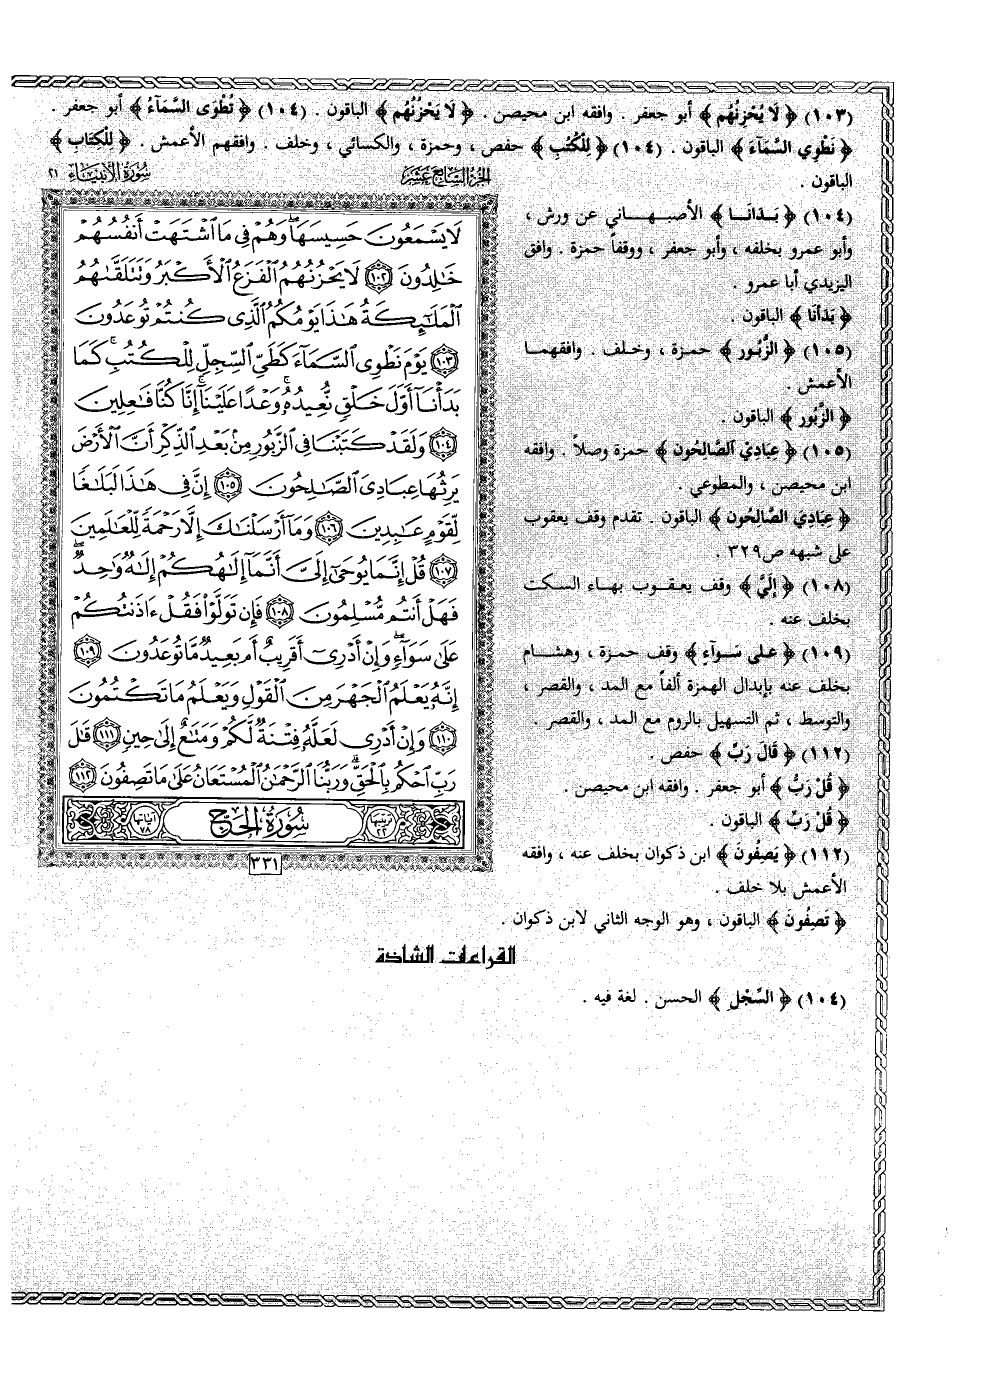 (١٠٣) ﴿ لَا يُحْزِنُهُم ﴾ أبو جعفر . وافقه ابن محيصن . ﴿ لَا يَحْزُنُهُم ﴾ الباقون . (١٠٤) ﴿ تُطْوَى السَّمَآءُ ﴾ أبو جعفر .
﴿ نَطْوِي السَّمَآءَ ﴾ الباقون . (١٠٤) ﴿ لِلْكُتُبِ ﴾ حفص ، وحمزة ، والكسائي ، وخلف . وافقهم الأعمش . ﴿ لِلْكِتَابِ ﴾
الباقون .
(١٠٤) ﴿ بَدَانَا ﴾ الأصبهاني عن ورش ،
وأبو عمرو بخلفه ، وأبو جعفر ، ووقفاً حمزة . وافق
اليزيدي أبا عمرو .
﴿ بَدَأنَا ﴾ الباقون .
(١٠٥) ﴿ الزُّبُور ﴾ حمزة ، وخلف . وافقهما
الأعمش .
﴿ الزَّبُور ﴾ الباقون .
(١٠٥) ﴿ عِبَادِيْ الصَّالِحُون ﴾ حمزة وصلاً . وافقه
ابن محيصن ، والمطوعي .
﴿ عِبَادِيَ الصَّالِحُون ﴾ الباقون . تقدم وقف يعقوب
على شبهه ص٣٢٩ .
(١٠٨) ﴿ إِلَيَّ ﴾ وقف يعقوب بهاء السكت
بخلف عنه .
(١٠٩) ﴿ عَلَى سَوَآءٍ ﴾ وقف حمزة ، وهشام
بخلف عنه بإبدال الهمزة ألفاً مع المد ، والقصر ،
والتوسط ، ثم التسهيل بالروم مع المد ، والقصر .
(١١٢) ﴿ قَالَ رَبِّ ﴾ حفص .
﴿ قُلْ رَبُّ ﴾ أبو جعفر . وافقه ابن محيصن .
﴿ قُلْ رَبِّ ﴾ الباقون .
(١١٢) ﴿ يَصِفُونَ ﴾ ابن ذكوان بخلف عنه ، وافقه
الأعمش بلا خلف .
﴿ تَصِفُونَ ﴾ الباقون ، وهو الوجه الثاني لابن ذكوان .
الجزء السابع عشر
سورة الأنبياء ٢١
لَا يَسْمَعُونَ حَسِيسَهَا ۖ وَهُمْ فِى مَا ٱشْتَهَتْ أَنفُسُهُمْ
خَٰلِدُونَ ١٠٢ لَا يَحْزُنُهُمُ ٱلْفَزَعُ ٱلْأَكْبَرُ وَتَتَلَقَّىٰهُمُ
ٱلْمَلَٰٓئِكَةُ هَٰذَا يَوْمُكُمُ ٱلَّذِى كُنتُمْ تُوعَدُونَ
١٠٣ يَوْمَ نَطْوِى ٱلسَّمَآءَ كَطَىِّ ٱلسِّجِلِّ لِلْكُتُبِ ۚ كَمَا
بَدَأْنَآ أَوَّلَ خَلْقٍ نُّعِيدُهُۥ ۚ وَعْدًا عَلَيْنَآ ۚ إِنَّا كُنَّا فَٰعِلِينَ
١٠٤ وَلَقَدْ كَتَبْنَا فِى ٱلزَّبُورِ مِنۢ بَعْدِ ٱلذِّكْرِ أَنَّ ٱلْأَرْضَ
يَرِثُهَا عِبَادِىَ ٱلصَّٰلِحُونَ ١٠٥ إِنَّ فِى هَٰذَا لَبَلَٰغًا
لِّقَوْمٍ عَٰبِدِينَ ١٠٦ وَمَآ أَرْسَلْنَٰكَ إِلَّا رَحْمَةً لِّلْعَٰلَمِينَ
١٠٧ قُلْ إِنَّمَا يُوحَىٰٓ إِلَىَّ أَنَّمَآ إِلَٰهُكُمْ إِلَٰهٌ وَٰحِدٌ ۖ
فَهَلْ أَنتُم مُّسْلِمُونَ ١٠٨ فَإِن تَوَلَّوْا۟ فَقُلْ ءَاذَنتُكُمْ
عَلَىٰ سَوَآءٍ ۖ وَإِنْ أَدْرِىٓ أَقَرِيبٌ أَم بَعِيدٌ مَّا تُوعَدُونَ ١٠٩
إِنَّهُۥ يَعْلَمُ ٱلْجَهْرَ مِنَ ٱلْقَوْلِ وَيَعْلَمُ مَا تَكْتُمُونَ
١١٠ وَإِنْ أَدْرِى لَعَلَّهُۥ فِتْنَةٌ لَّكُمْ وَمَتَٰعٌ إِلَىٰ حِينٍ ١١١ قَٰلَ
رَبِّ ٱحْكُم بِٱلْحَقِّ ۗ وَرَبُّنَا ٱلرَّحْمَٰنُ ٱلْمُسْتَعَانُ عَلَىٰ مَا تَصِفُونَ ١١٢
ترتيبها ٢٢ سُورَةُ الحَجِّ آياتها ٧٨
٣٣١
القراءات الشاذة
(١٠٤) ﴿ السِّجْلِ ﴾ الحسن . لغة فيه .